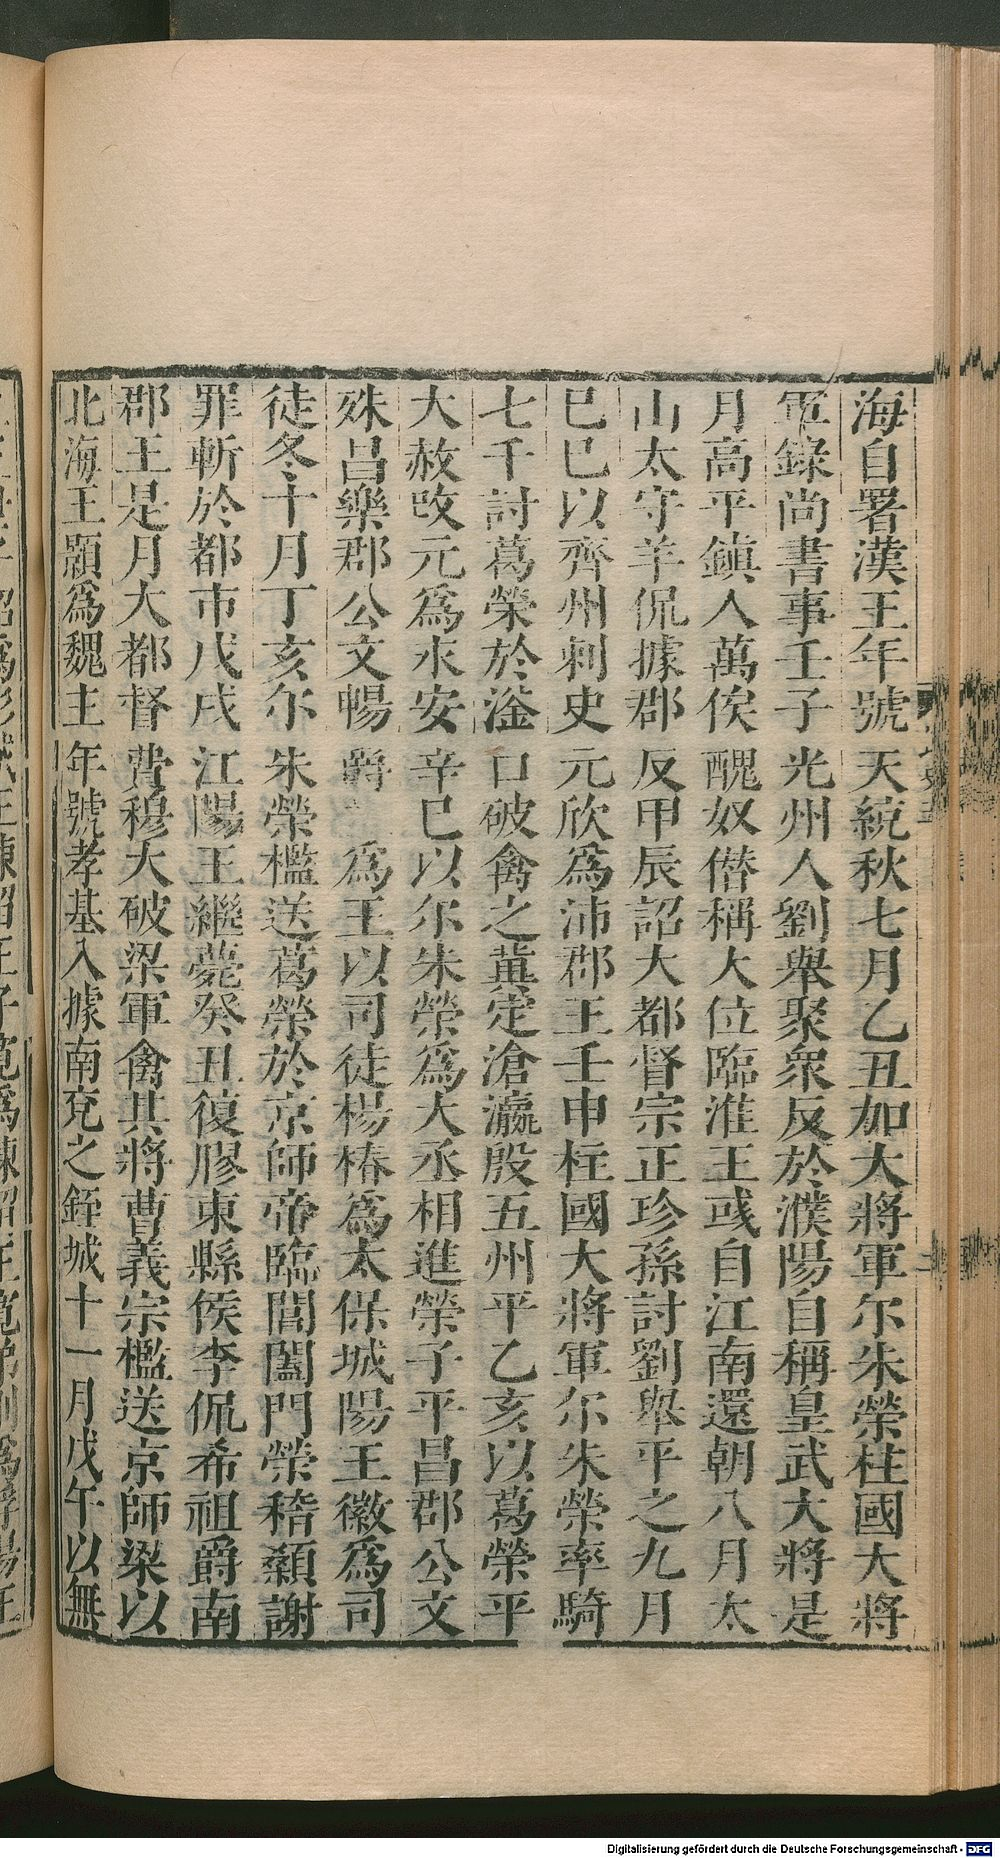 海自署漢王年號天統秋七月乙丑加大將軍尒朱榮柱國大將
軍錄尚書事壬子光州人劉舉聚衆反於濮陽自稱皇武大將是
月高平鎮人萬俟醜奴僣稱大位臨淮王彧自江南還朝八月太
山太守羊侃據郡反甲辰詔大都督宗正珍孫討劉舉平之九月
巳巳以齊州刺史元欣爲沛郡王壬申柱國大將軍尒朱榮率騎
七千討葛榮於滏口破禽之冀定滄瀛殷五州平乙亥以葛榮平
大赦改元爲永安辛巳以尒朱榮爲大丞相進榮子平昌郡公文
殊昌樂郡公文暢爵爲王以司徒楊椿爲太保城陽王徽爲司
徒冬十月丁亥尒朱榮檻送葛榮於京師帝臨閶闔門榮稽顙謝
罪斬於都市戊戌江陽王繼薨癸丑復膠東縣侯李侃希祖爵南
郡王是月大都督費穆大破梁軍禽其將曹義宗檻送京師梁以
北海王顥爲魏主年號孝基入據南兖之銍城十一月戊午以無
Digitalisierung gefördert durch die Deutsche Forschungsgemeinschaft - DFG